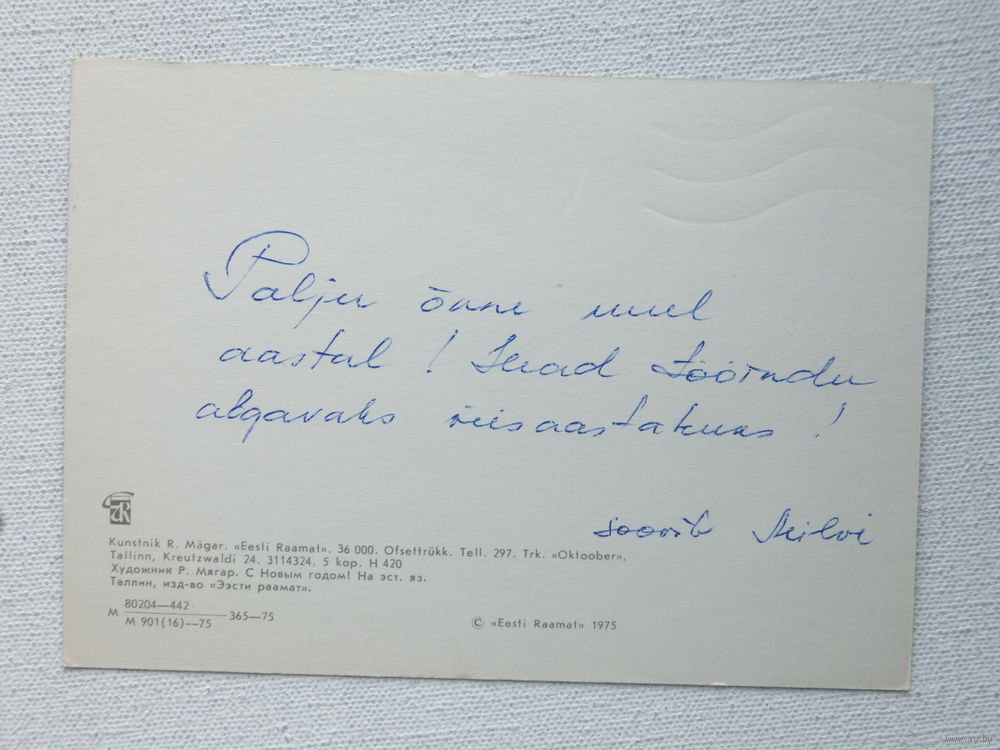 Palju õnne uuel
aastal! Head tööindu
algavaks viisaastakuks!
soovib Meilvi
ER
Kunstnik R. Mägar. «Eesti Raamat». 36 000. Ofsettrükk. Tell. 297. Trk. «Oktoober»,
Tallinn, Kreutzwaldi 24. 3114324. 5 kop. H 420
Художник Р. Мягар. С Новым годом! На эст. яз.
Таллин, изд-во «Ээсти раамат».
М 80204—442 365—75
М 901(16)—75
© «Eesti Raamat» 1975
www.ay.by